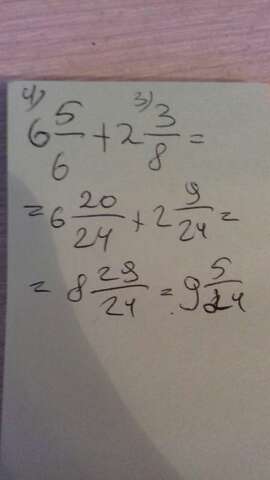 6 5/6 + 2 3/8 =
= 6 20/24 + 2 9/24 =
= 8 29/24 = 9 5/24